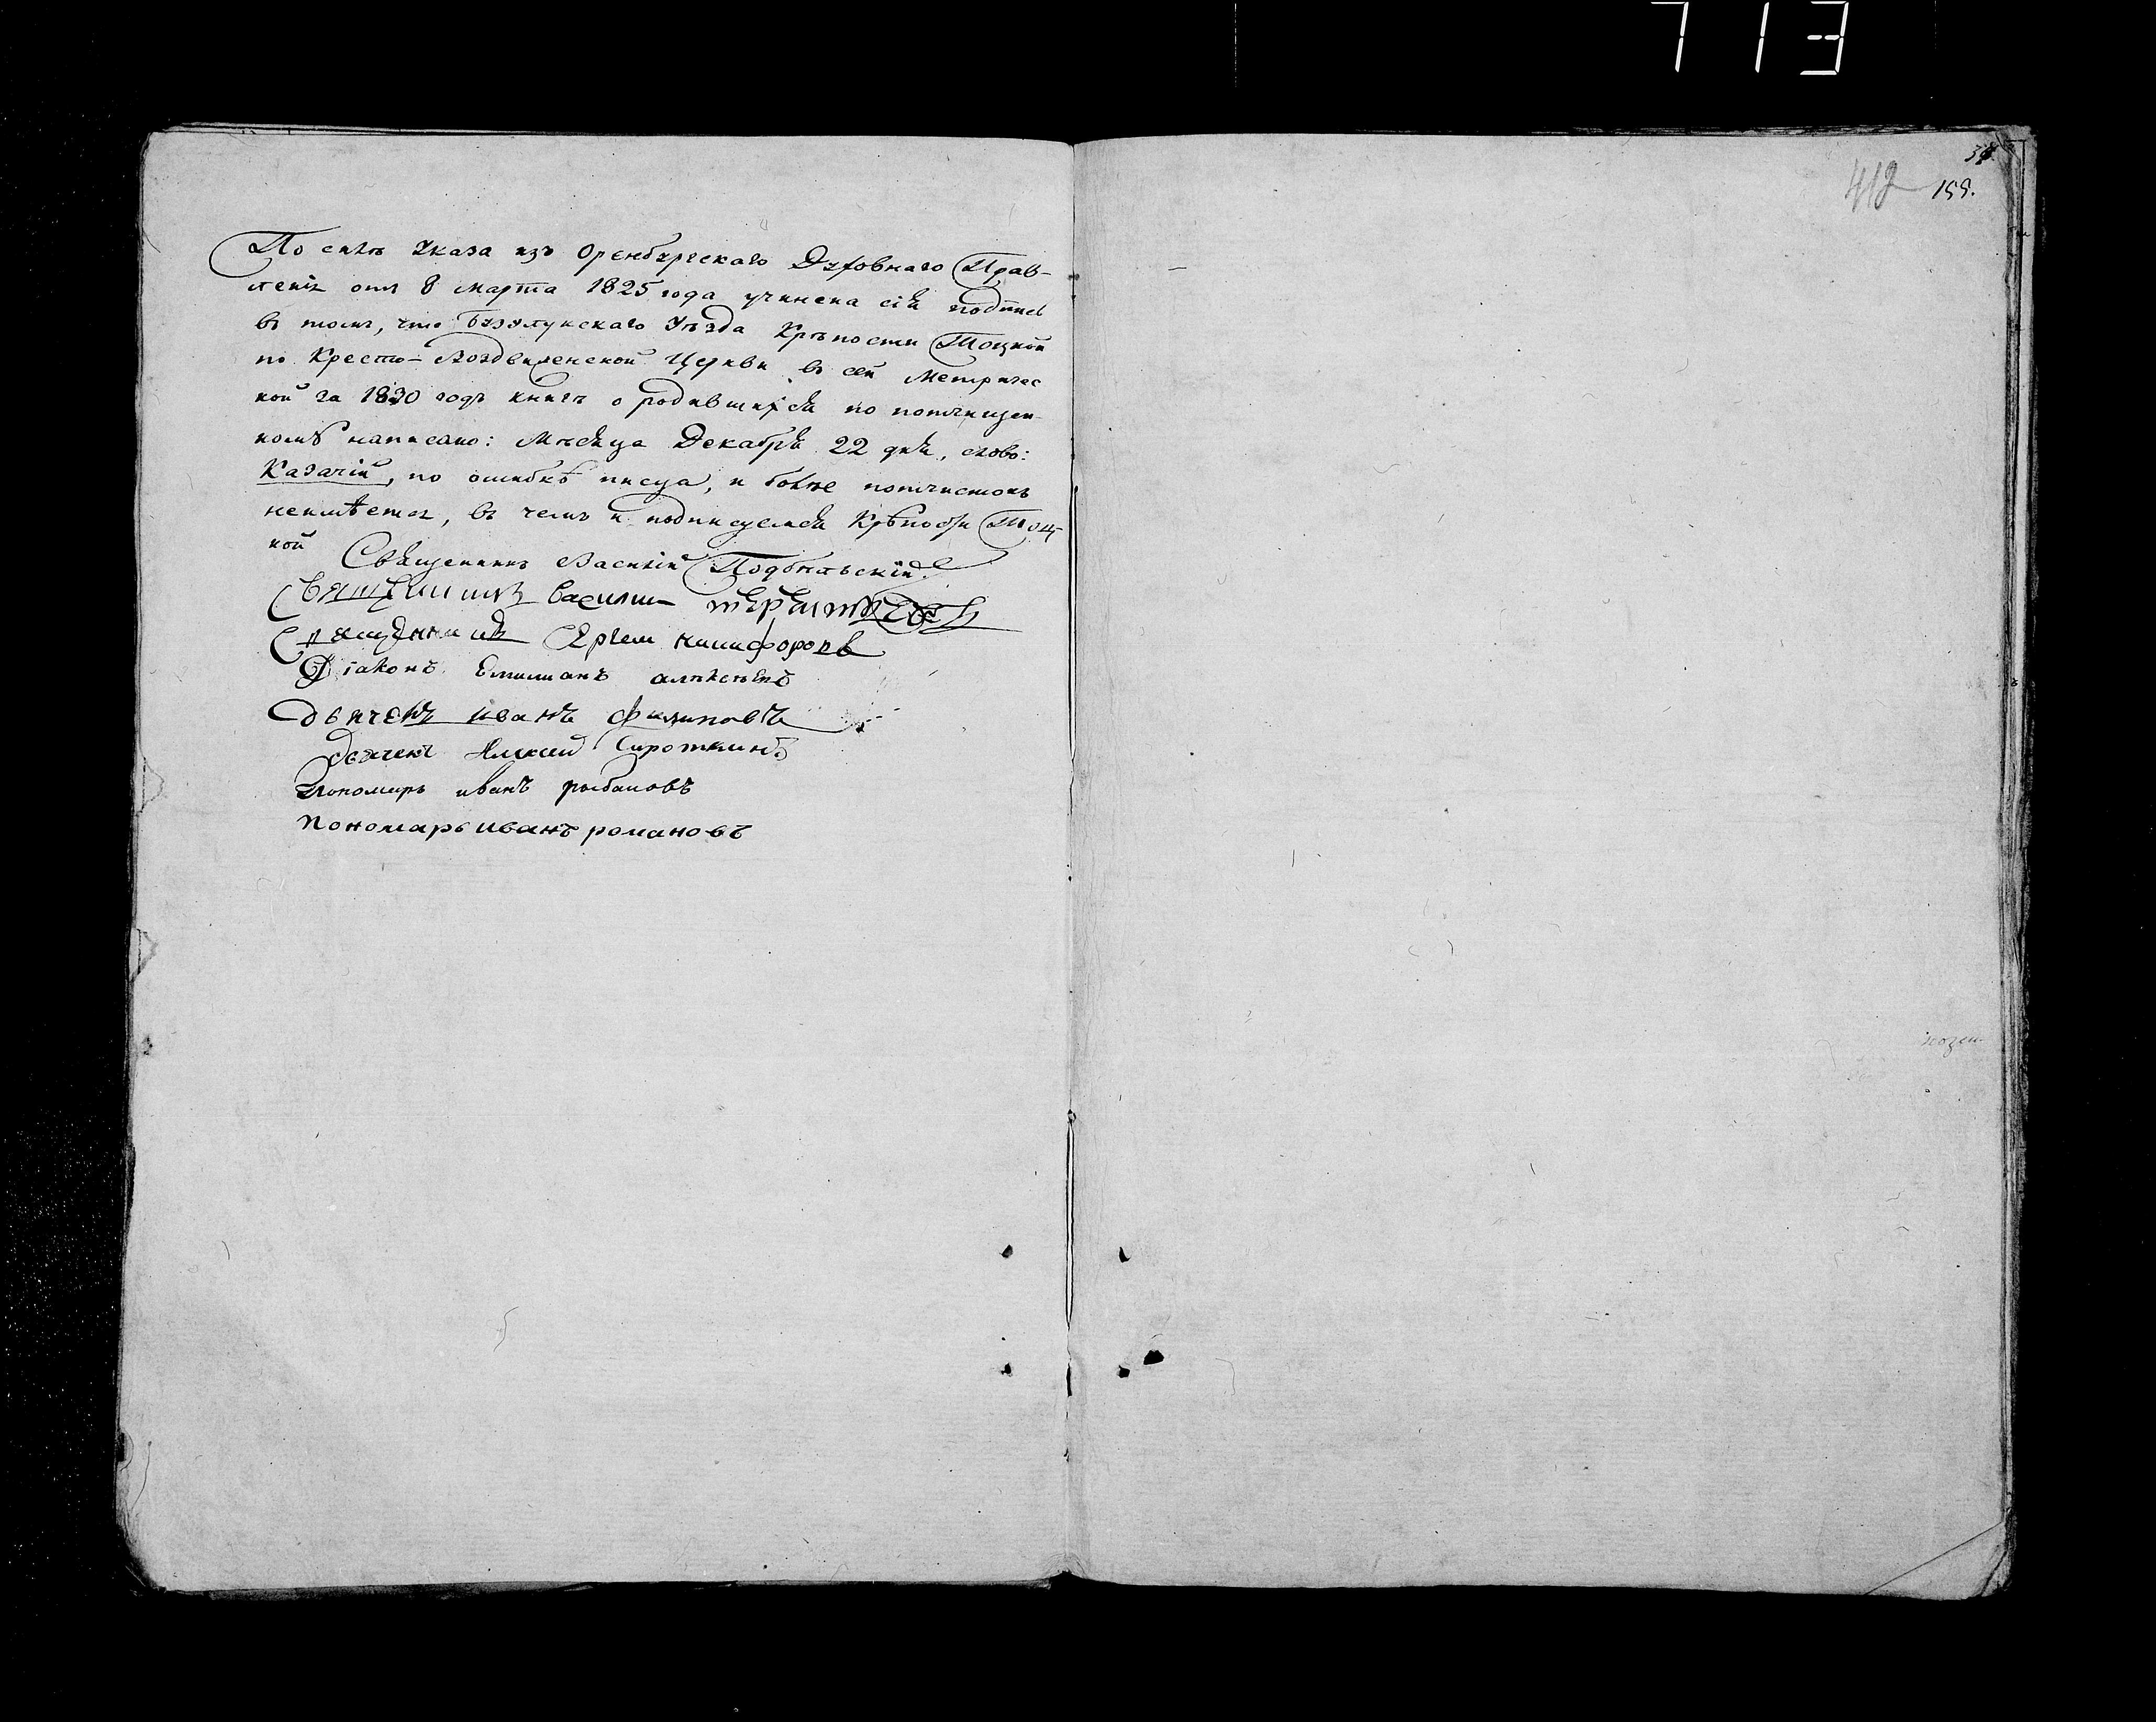 713
412
155.
По силѣ Указа изъ Оренбургскаго Духовнаго Прав-
ленія отъ 8 марта 1825 года учинена сія подпись
въ томъ, что Бузулукскаго Уѣзда Крѣпости Тоцкой
по Кресто-Воздвиженской Церкви въ сей Метричес
кой за 1830 годъ книгѣ о родившихся по подчищен
ному написано: Мѣсяца Декабря 22 дня, слово:
Казачій, по ошибкѣ писца, и болѣе подчистокъ
неимѣется, въ чемъ и подписуемся Крѣпости Тоц-
кой
Священникъ Василій Подбѣльскій
Священникъ Василий
Священникъ Сергеи никифоровъ
Діаконъ Емилианъ алѣксѣевъ
дьячекъ иванъ филиповъ
дьячекъ Алексей Сироткинъ
Пономарь иванъ
пономарь иванъ романовъ